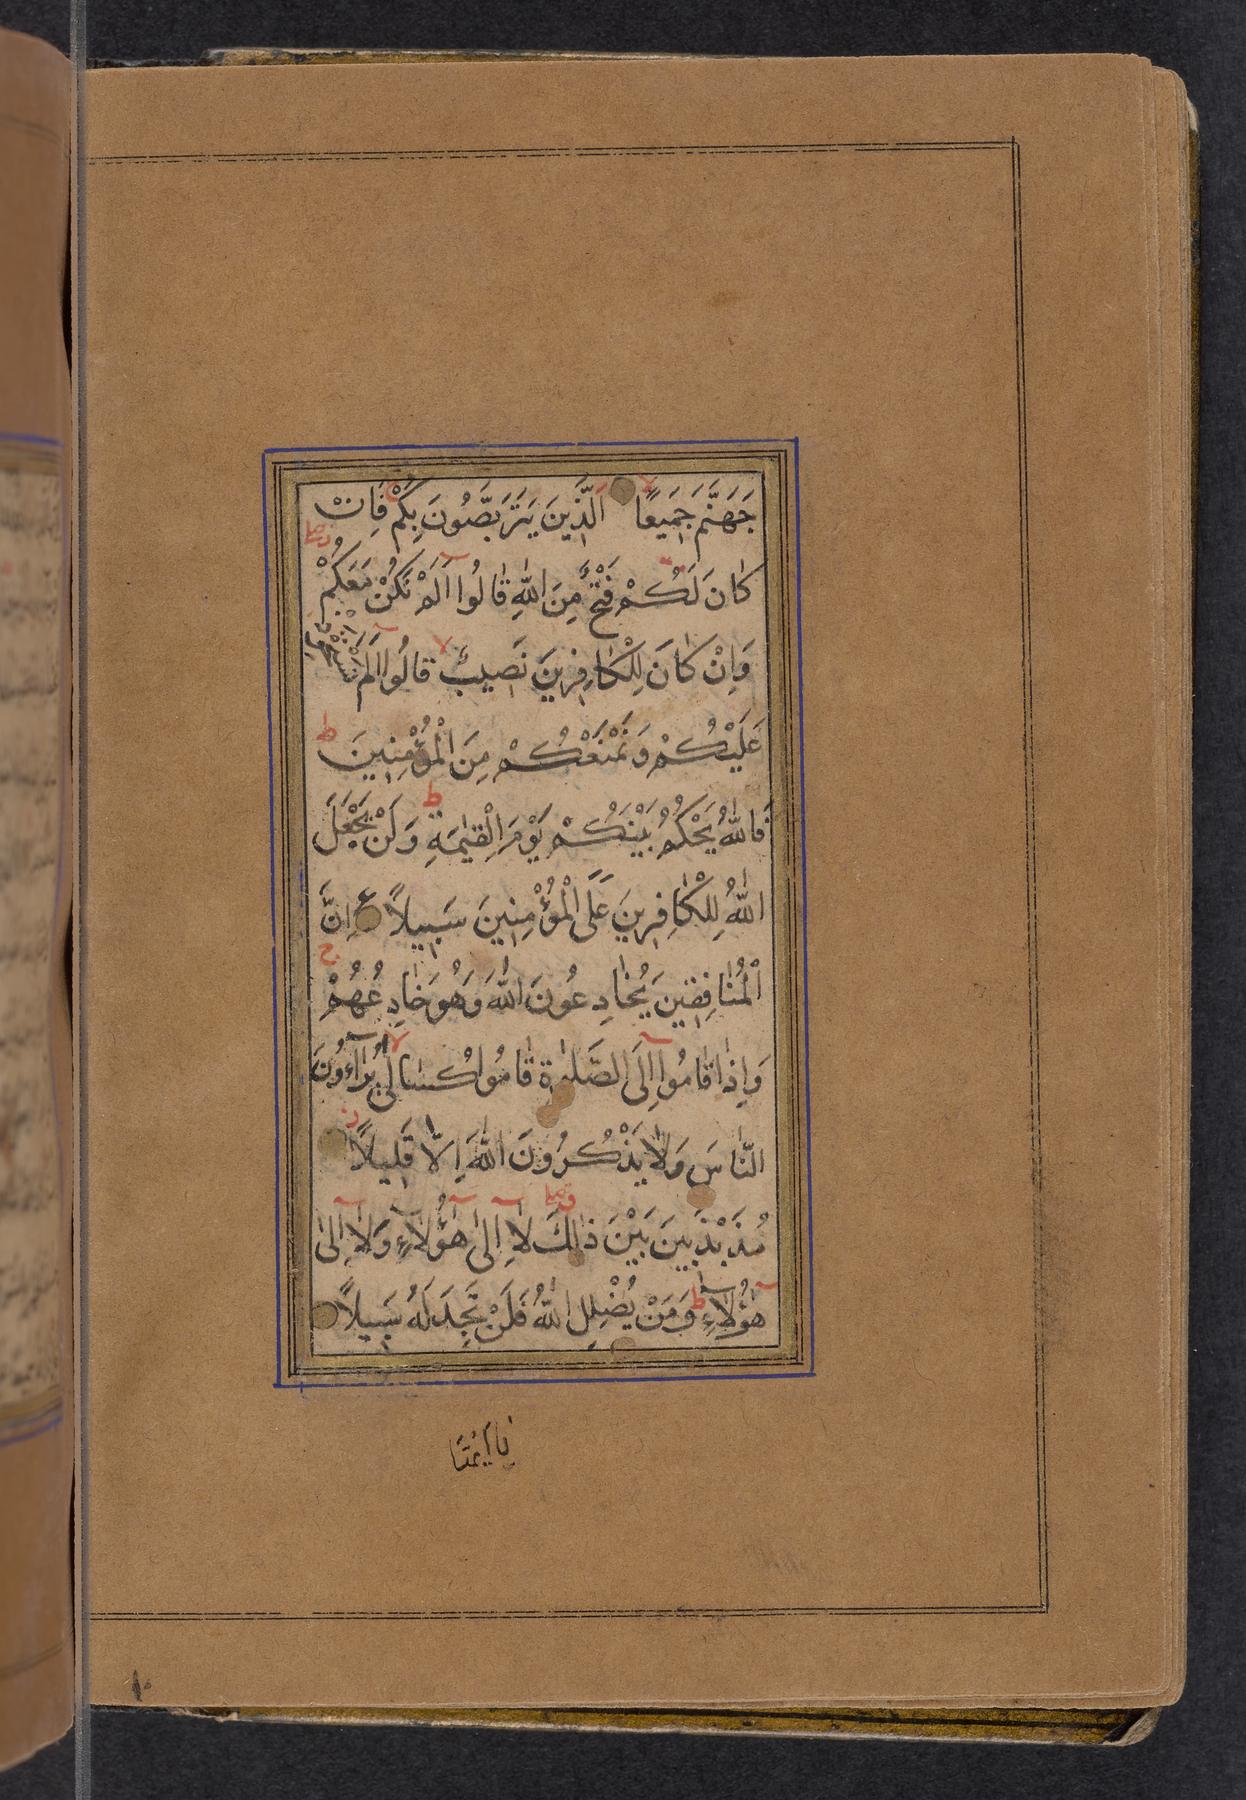 جَهَنَّمَ جَمِيعًا الَّذِينَ يَتَرَبَّصُونَ بِكُمْ فَاِنْ
كَانَ لَكُمْ فَتْحٌ مِنَ اللّٰهِ قَالُوا اَلَمْ نَكُنْ مَعَكُمْ
وَاِنْ كَانَ لِلْكَافِرِينَ نَصِيبٌ قَالُوا اَلَمْ نَسْتَحْوِذْ
عَلَيْكُمْ وَنَمْنَعْكُمْ مِنَ الْمُؤْمِنِينَ
فَاللّٰهُ يَحْكُمُ بَيْنَكُمْ يَوْمَ الْقِيٰمَةِ وَلَنْ يَجْعَلَ
اللّٰهُ لِلْكَافِرِينَ عَلَى الْمُؤْمِنِينَ سَبِيلًا اِنَّ
الْمُنَافِقِينَ يُخَادِعُونَ اللّٰهَ وَهُوَ خَادِعُهُمْ
وَاِذَا قَامُوا اِلَى الصَّلٰوةِ قَامُوا كُسَالٰى يُرَاؤُنَ
النَّاسَ وَلَا يَذْكُرُونَ اللّٰهَ اِلَّا قَلِيلًا
مُذَبْذَبِينَ بَيْنَ ذٰلِكَ لَا اِلٰى هٰؤُلَاءِ وَلَا اِلٰى
هٰؤُلَاءِ وَمَنْ يُضْلِلِ اللّٰهُ فَلَنْ تَجِدَ لَهُ سَبِيلًا